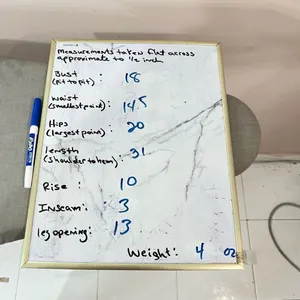 Measurements taken flat across
approximate to 1/2 inch
Bust : 18
(pit to pit)
Waist : 14.5
(smallest point)
Hips : 20
(largest point)
length : 31
(shoulder to hem)
Rise : 10
Inseam : 3
leg opening : 13
Weight : 4 oz
EXPO